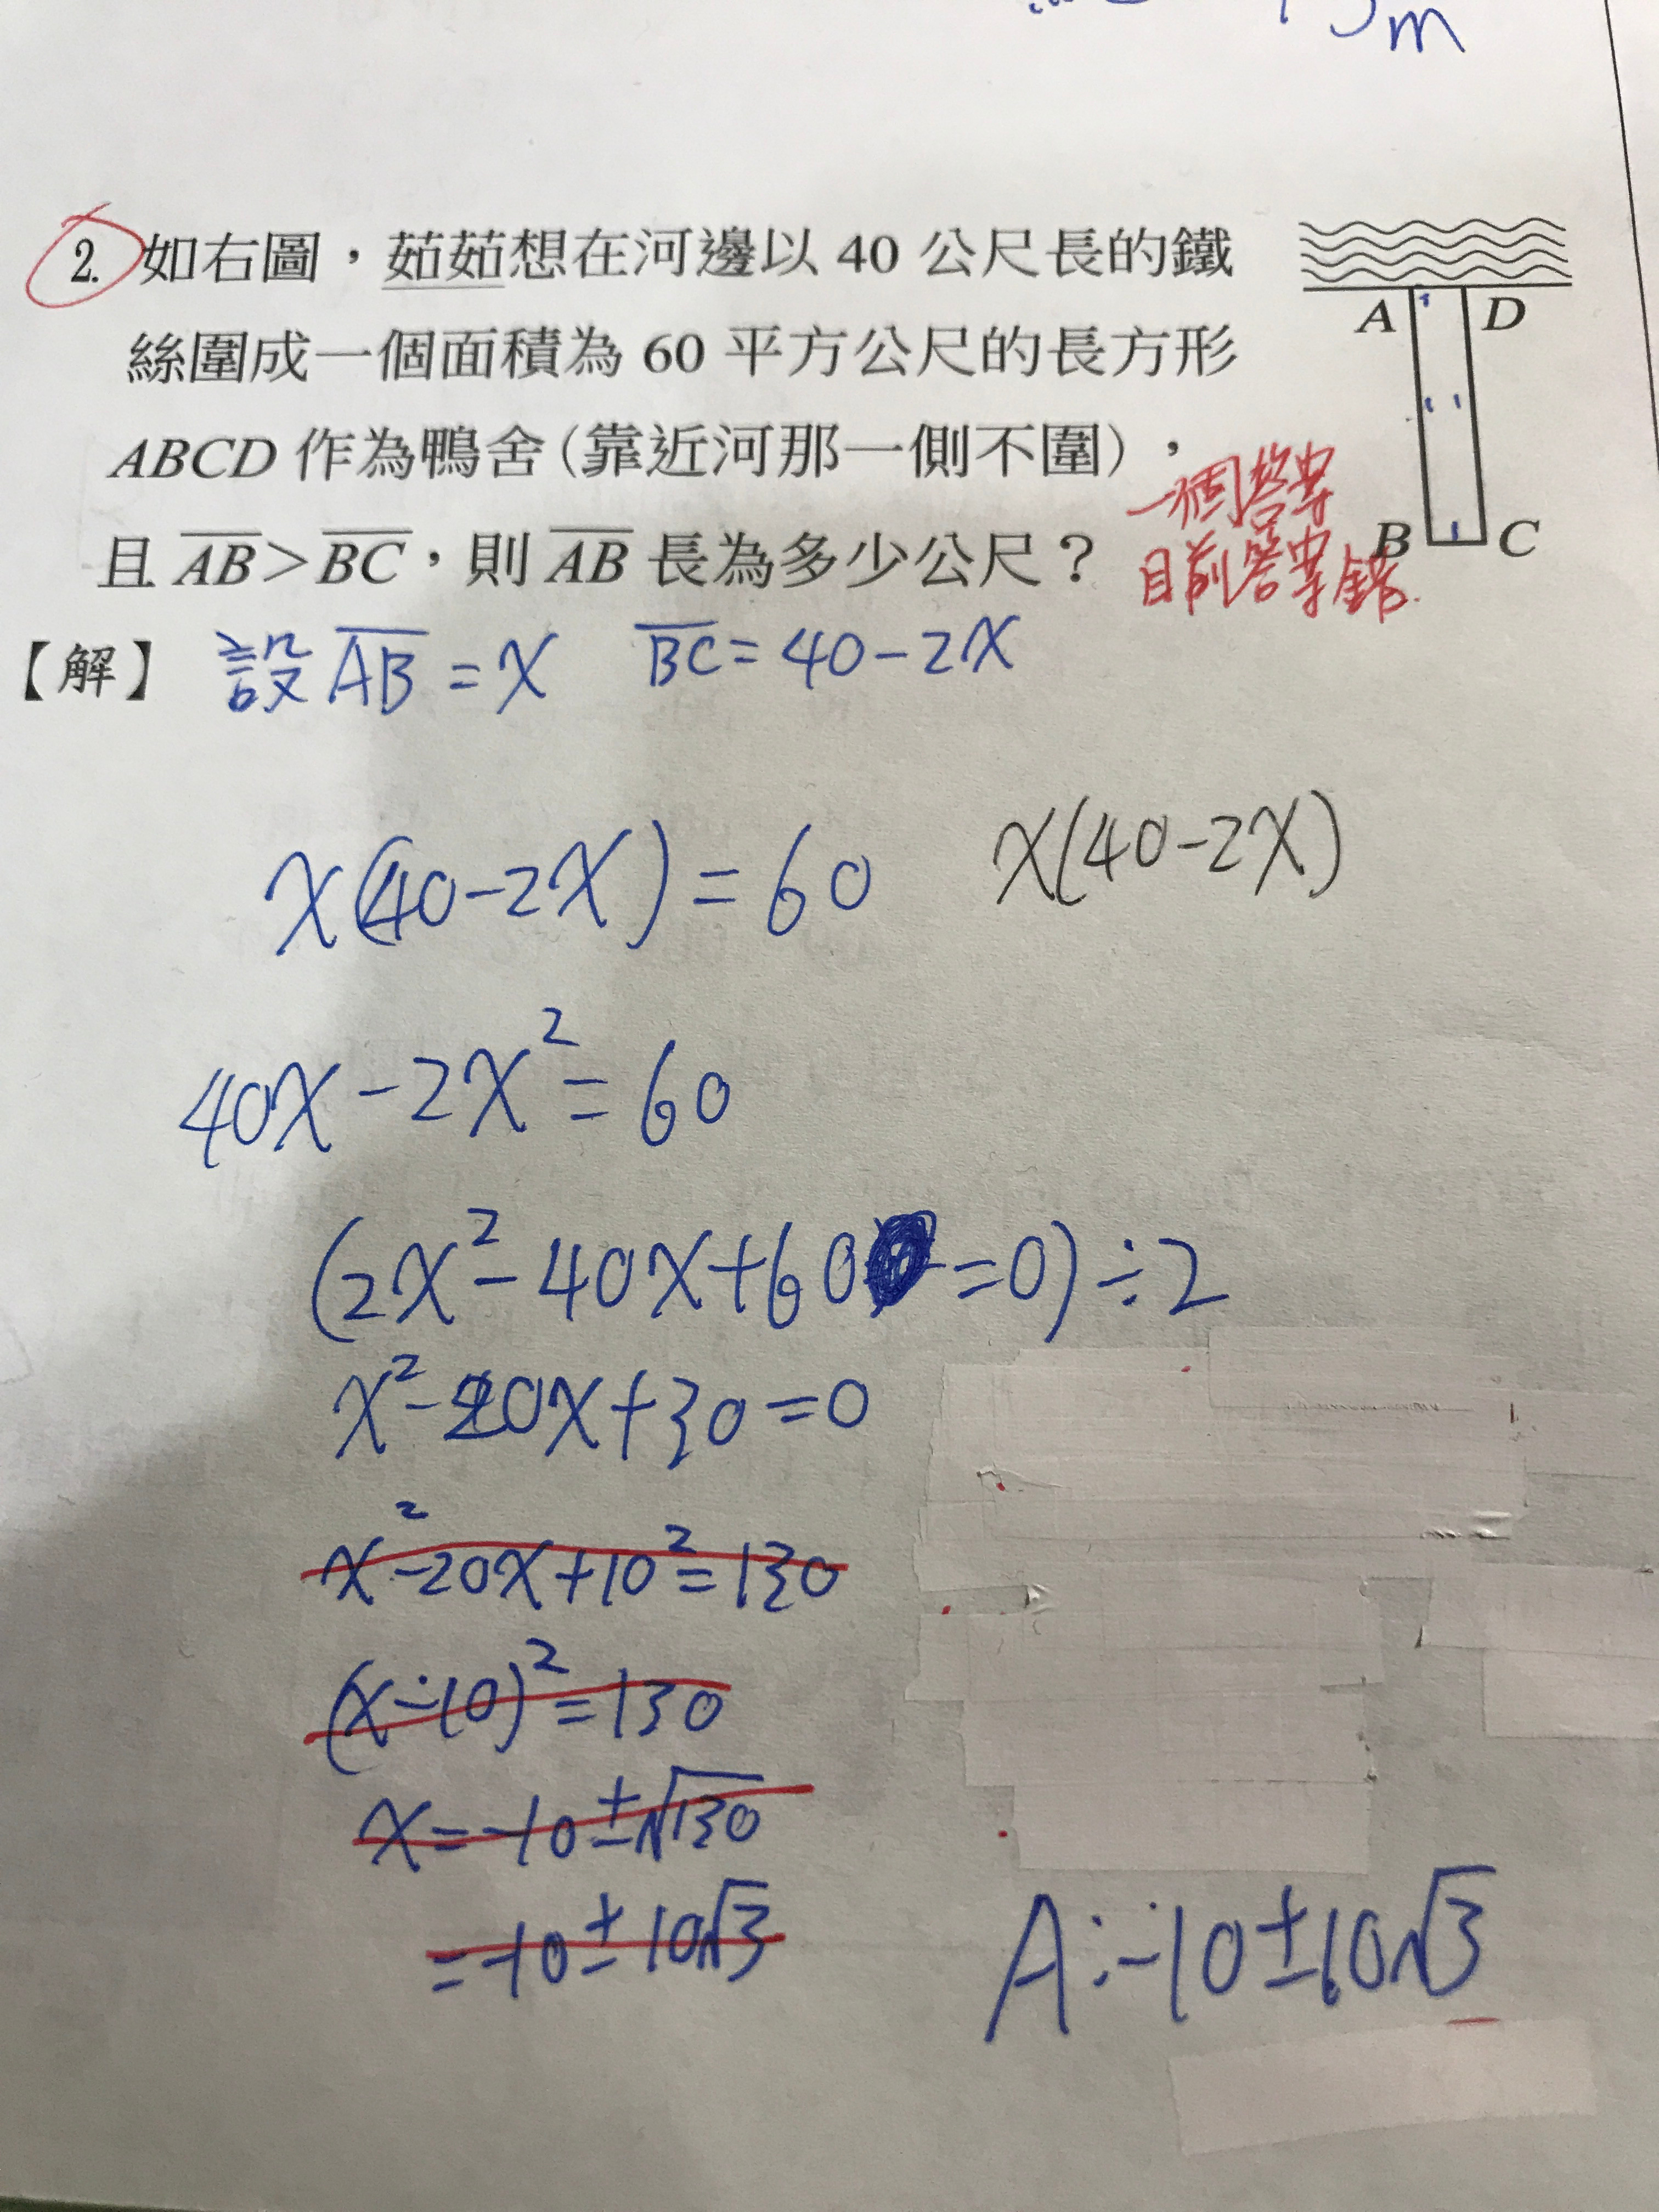 m
2. 如右圖，茹茹想在河邊以 40 公尺長的鐵
絲圍成一個面積為 60 平方公尺的長方形
ABCD 作為鴨舍(靠近河那一側不圍)，
且 AB>BC，則 AB 長為多少公尺？
A D
B C
一個答案
目前答案錯.
【解】 設 AB = x BC = 40-2x
x(40-2x) = 60 x(40-2x)
40x-2x²=60
(2x²-40x+60=0)÷2
x²-20x+30=0
x²-20x+10²=130
(x-10)²=130
x=-10±√130
=-10±10√3
A:-10±10√3